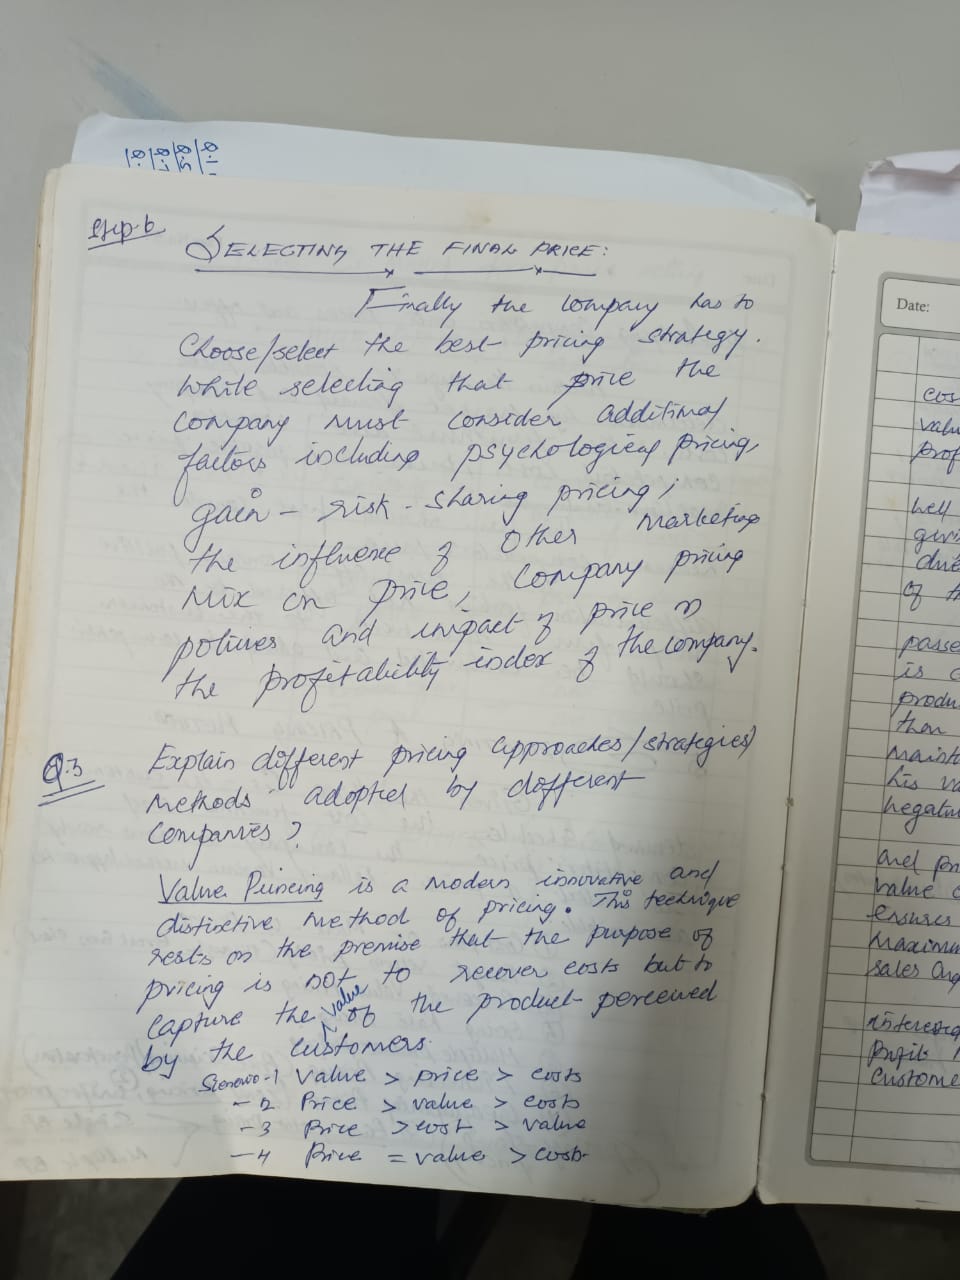 Step-6
SELECTING THE FINAL PRICE:
Finally the company has to
Choose/select the best pricing strategy.
While selecting that price the
company must consider additional
factors including psychological pricing,
gain - risk - sharing pricing,
the influence of other marketing
mix on price, company pricing
policies and impact of price on
the profitability index of the company.
Q.3
Explain different pricing approaches/strategies/
methods adopted by different
companies?
Value Princing is a modern innovative and
distinctive method of pricing. This technique
rests on the premise that the purpose of
pricing is not to recover costs but to
capture the value of the product perceived
by the customers.
Scenario-1 Value > price > costs
-2 Price > value > costs
-3 Price > cost > value
-4 Price = value > cost
Date:
cos
valu
prof
well
givi
due
of th
passe
is
produ
then
mainta
his va
negativ
and pr
value
ensures
maximu
sales
interest
profit
custome